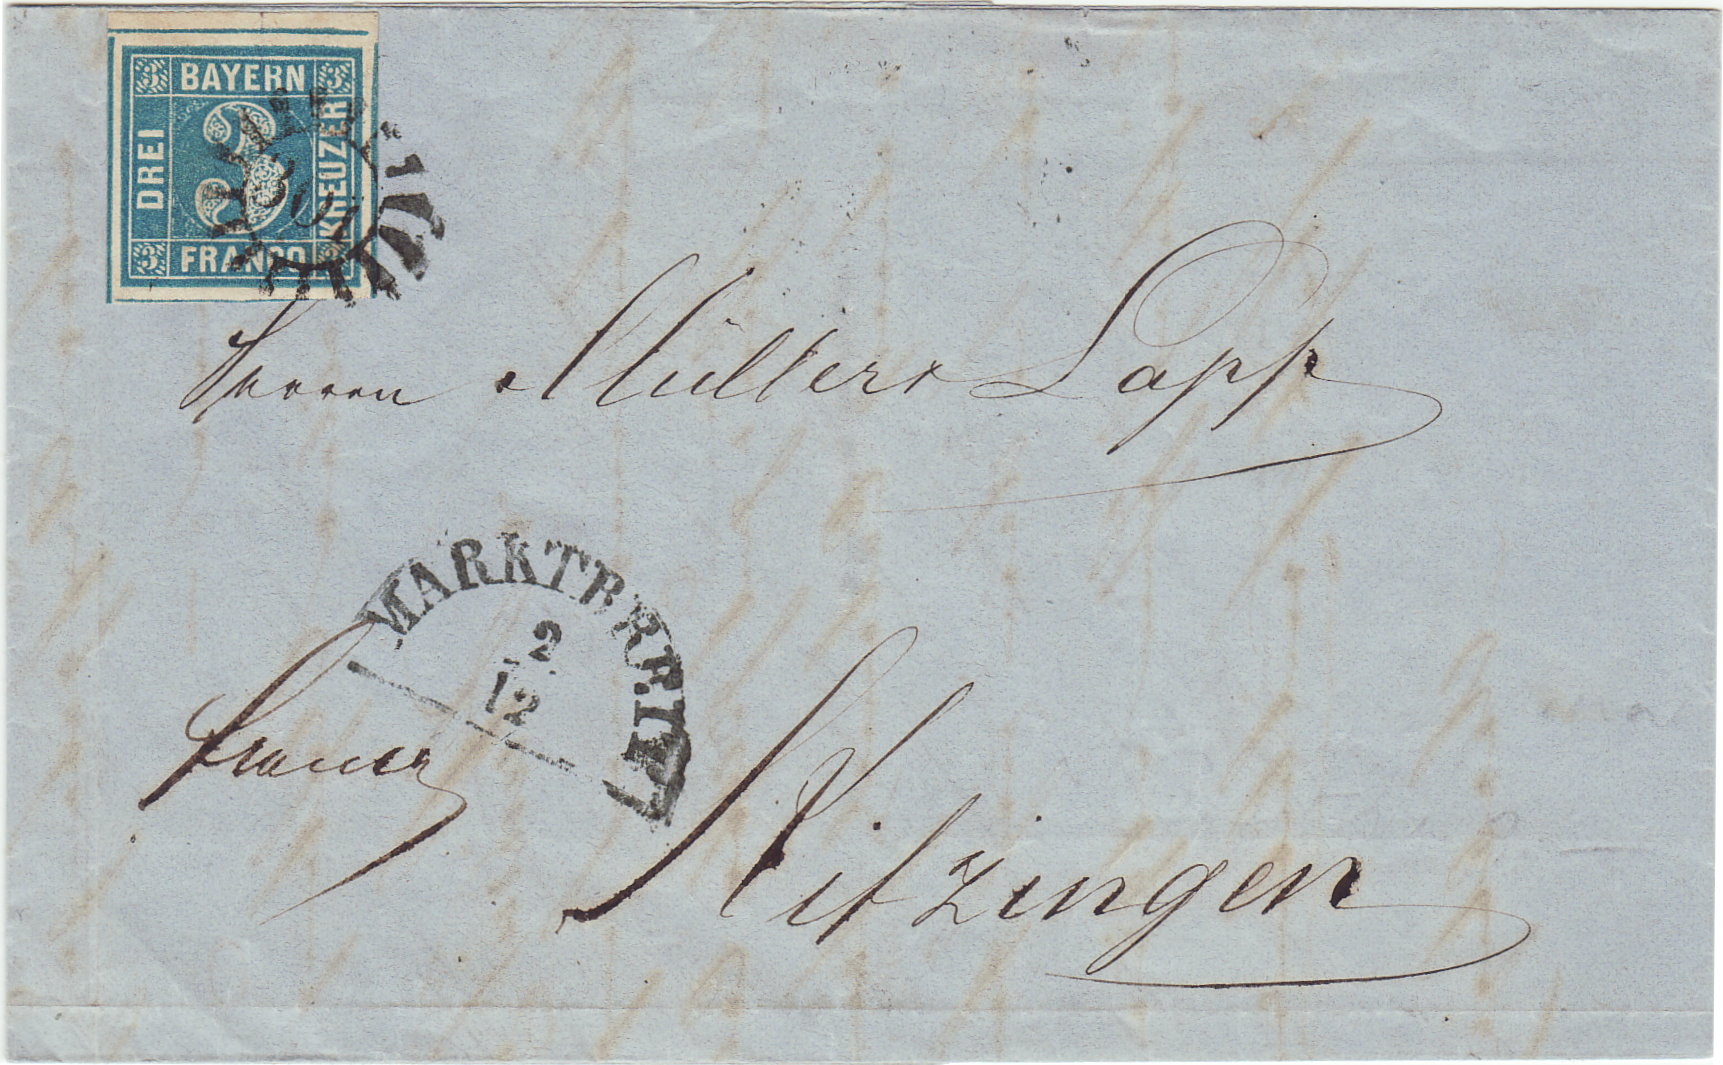 3 BAYERN 3
DREI
3
KREUZER
3 FRANCO
301
Herren Müller & Lapp
MARKTBREIT
2
12
franco
Kitzingen